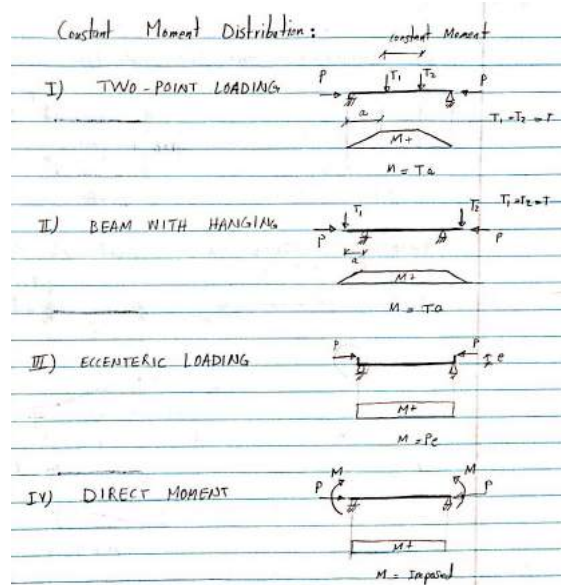 Constant Moment Distribution:
constant Moment
I) TWO-POINT LOADING
P T₁ T₂ P
a
T₁=T₂=T
M+
M = Ta
II) BEAM WITH HANGING
T₁ T₂ T₁=T₂=T
P P
a
M+
M = Ta
III) ECCENTERIC LOADING
P P e
M+
M = Pe
IV) DIRECT MOMENT
M M
P P
M+
M = Imposed